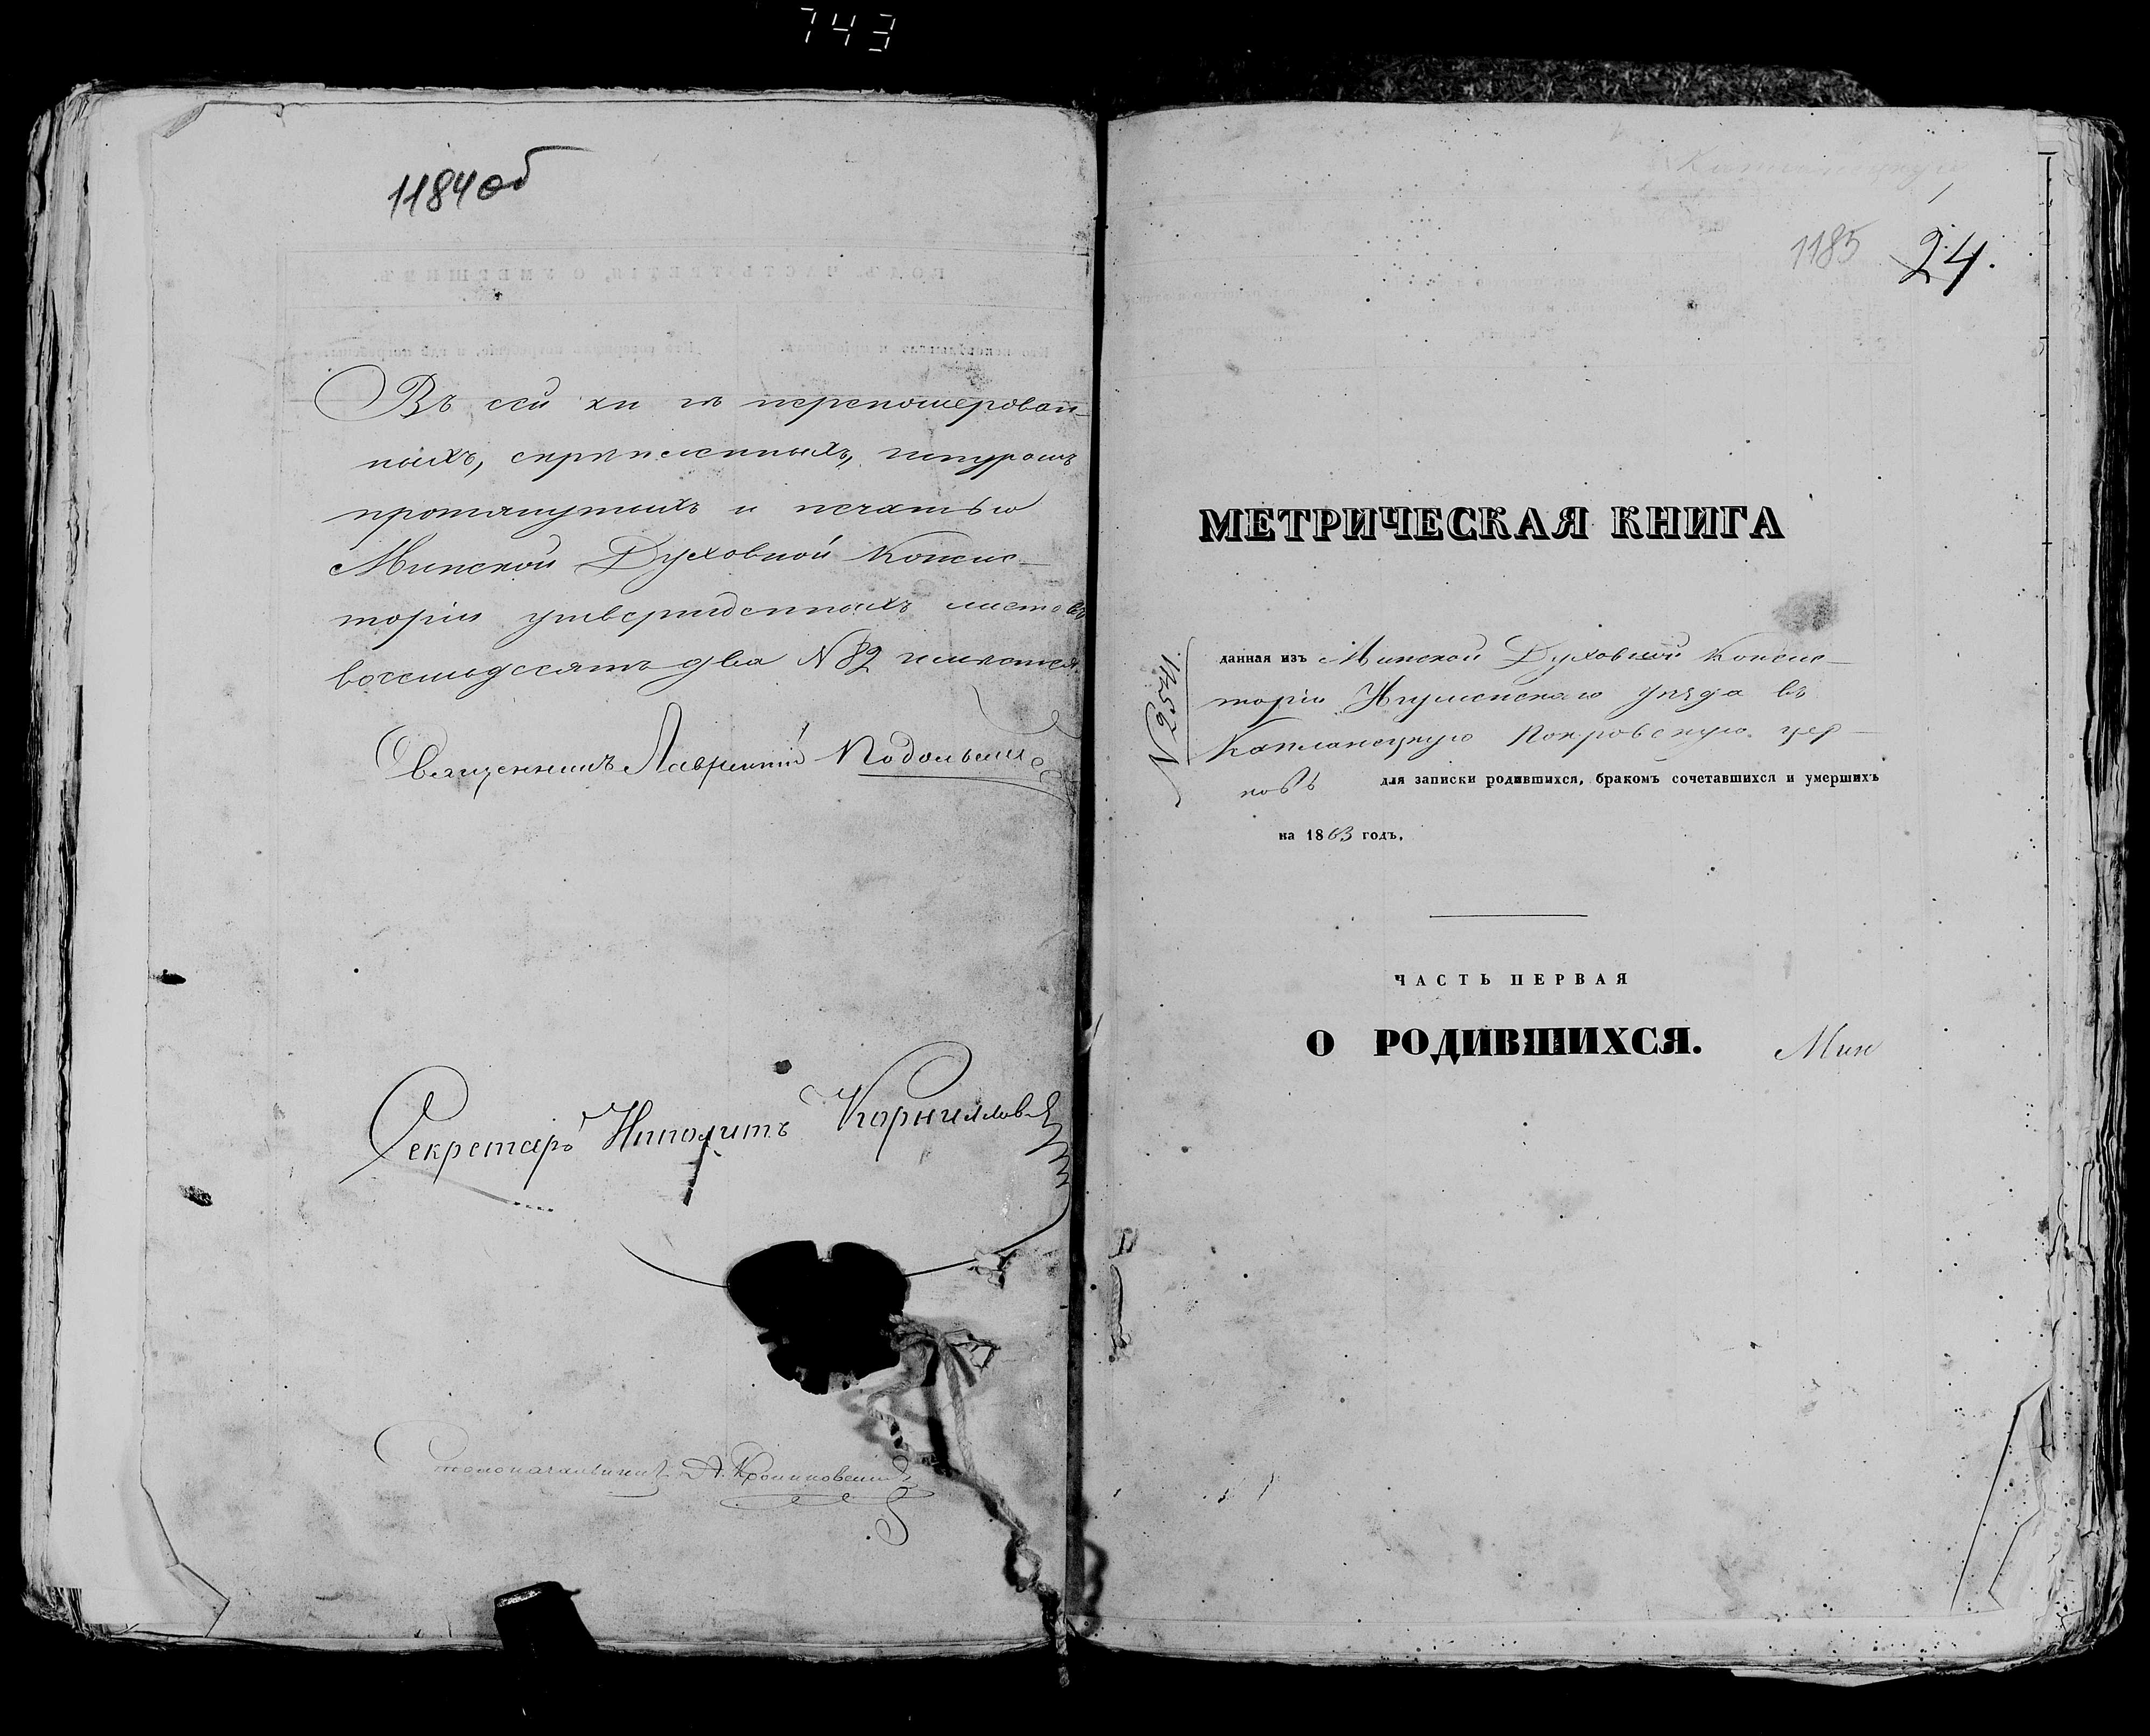 743
1184об
Въ сей кн гѣ перенумерован-
ныхъ, скрѣпленныхъ, шнуромъ
протянутыхъ и печатью
Минской Духовной Консис-
торіи утвержденныхъ листовъ
восемьдесятъ два N 82 имѣется
Священникъ Лаврентій Подольскій
Секретарь Иполитъ Корнилловъ
Столоначальникъ А.
1185 24.
МЕТРИЧЕСКАЯ КНИГА
N
данная изъ Минской Духовной Консис-
торіи Игуменскаго уѣзда въ
Капланецкую Покровскую цер-
ковь для записки родившихся, бракомъ сочетавшихся и умершихъ
на 1863 годъ.
ЧАСТЬ ПЕРВАЯ
О РОДИВШИХСЯ. Мин